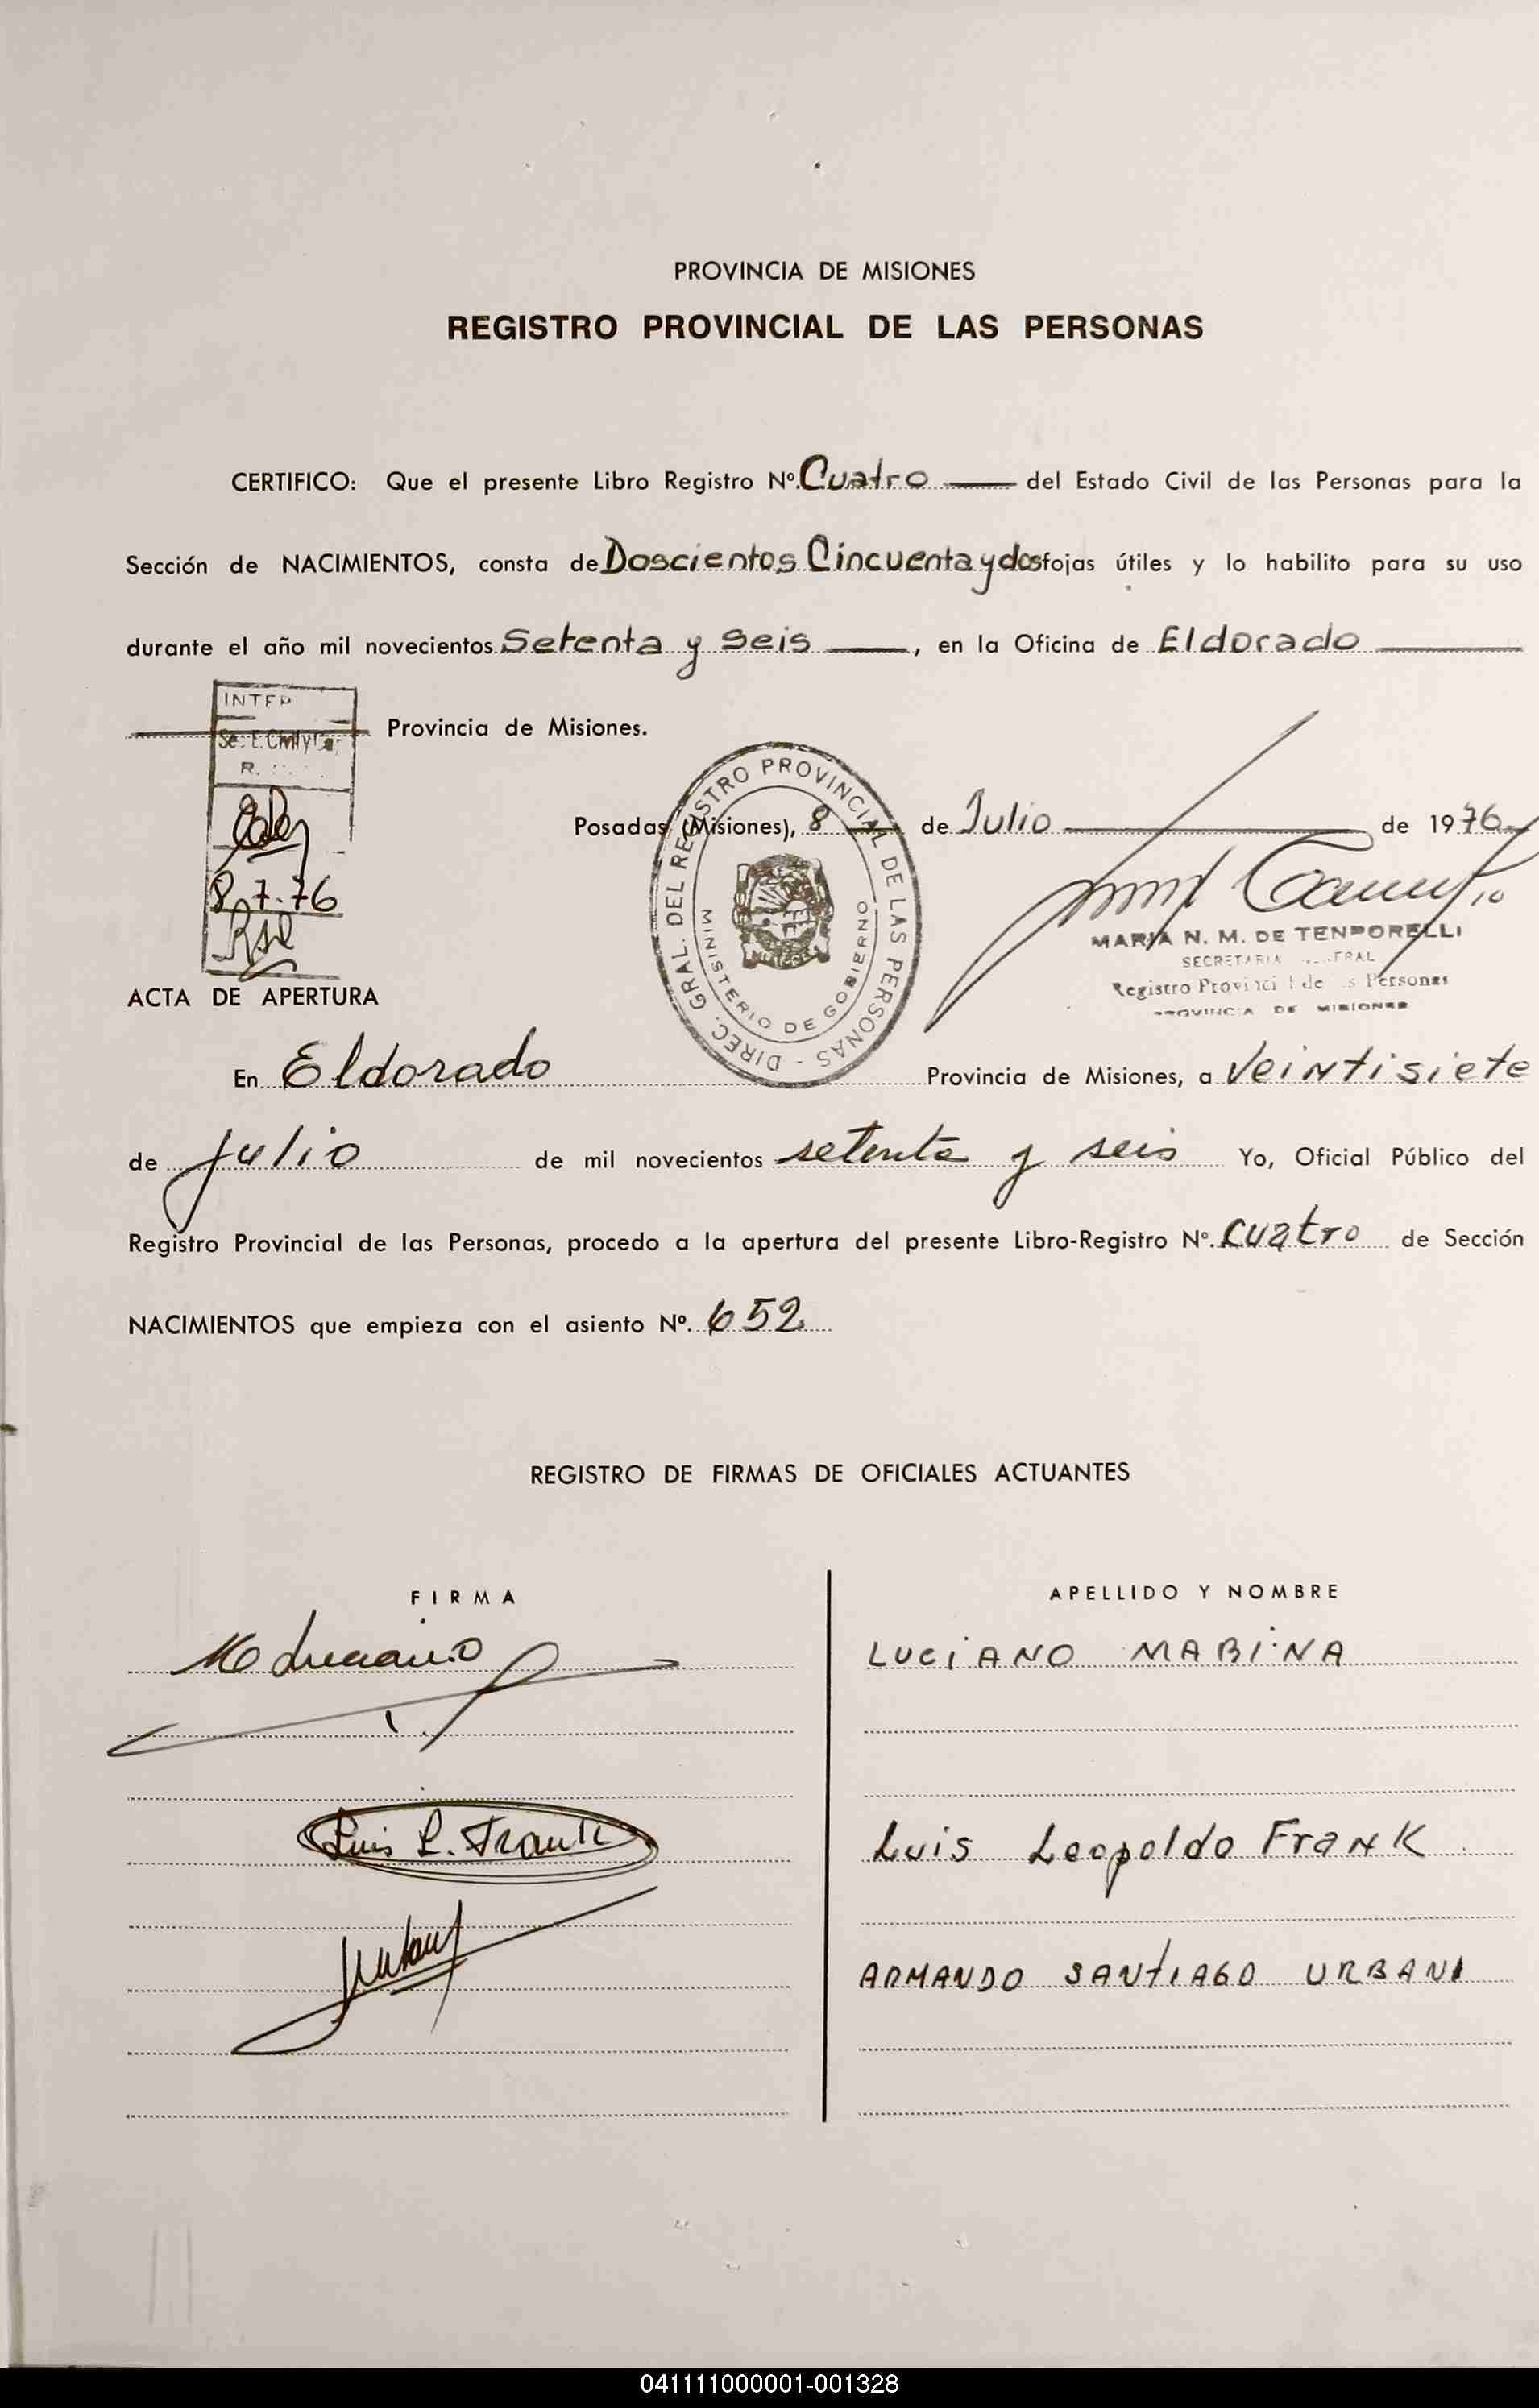 PROVINCIA DE MISIONES
REGISTRO PROVINCIAL DE LAS PERSONAS
CERTIFICO: Que el presente Libro Registro Nº. Cuatro del Estado Civil de las Personas para la
Sección de NACIMIENTOS, consta de Doscientos Cincuenta y dos fojas útiles y lo habilito para su uso
durante el año mil novecientos Setenta y Seis, en la Oficina de Eldorado
Provincia de Misiones.
INTER
Civil y
R.
8.7.76
Posadas (Misiones), 8 de Julio de 1976
DIREC. GRAL. DEL REGISTRO PROVINCIAL DE LAS PERSONAS -
MINISTERIO DE GOBIERNO
MARIA N. M. DE TENPORELLI
SECRETARIA
Registro Provincial de Personas
PROVINCIA DE MISIONES
ACTA DE APERTURA
En Eldorado Provincia de Misiones, a Veintisiete
de julio de mil novecientos setenta y seis Yo, Oficial Público del
Registro Provincial de las Personas, procedo a la apertura del presente Libro-Registro Nº. Cuatro de Sección
NACIMIENTOS que empieza con el asiento Nº. 652
REGISTRO DE FIRMAS DE OFICIALES ACTUANTES
FIRMA APELLIDO Y NOMBRE
Luciano LUCIANO MABINA
Luis L. Frank Luis Leopoldo Frank
ARMANDO SANTIAGO URBANI
041111000001-001328